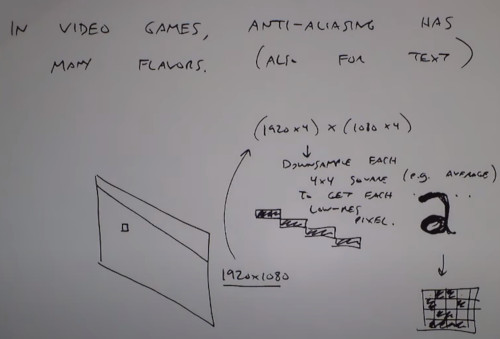 IN VIDEO GAMES, ANTI-ALIASING HAS
MANY FLAVORS. (ALSO FOR TEXT)
(1920x4) x (1080x4)
DOWNSAMPLE EACH
4x4 SQUARE (e.g. AVERAGE)
TO GET EACH
LOW-RES
PIXEL.
a
1920x1080